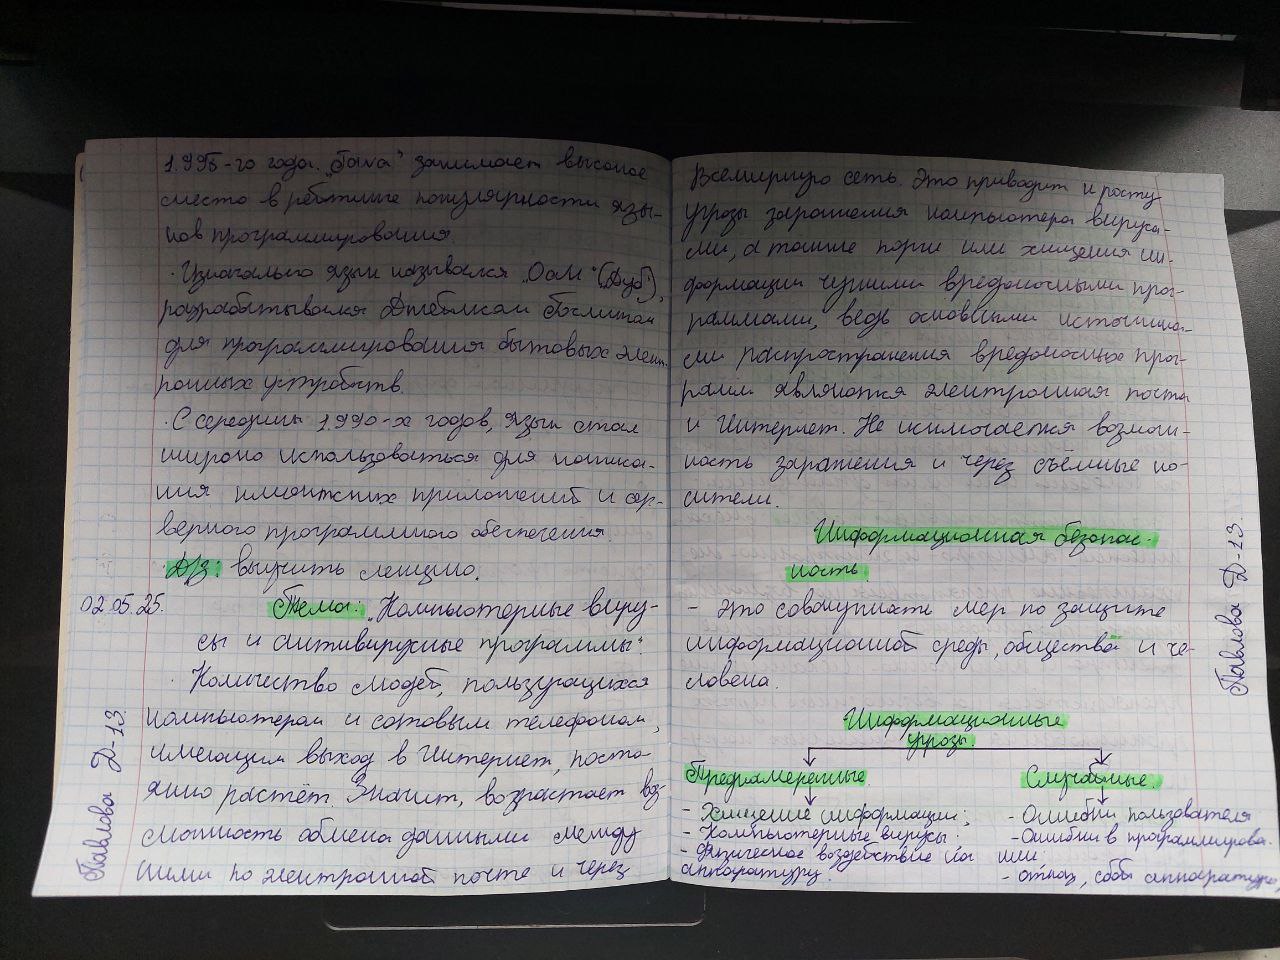 1995-го года. „Java" занимает высокое
место в рейтинге популярности язы-
ков программирования.
· Изначально язык назывался „Oak" („Дуб"),
разрабатывался Джеймсом Гослингом
для программирования бытовых элект-
ронных устройств.
· С середины 1990-х годов, язык стал
широко использоваться для написа-
ния клиентских приложений и сер-
верного программного обеспечения.
Д/З: выучить лекцию.
02.05.25.
Тема: „Компьютерные виру-
сы и антивирусные программы".
Количество людей, пользующихся
компьютером и сотовым телефоном,
имеющим выход в Интернет, посто-
янно растёт. Значит, возрастает воз-
можность обмена данными между
ними по электронной почте и через
Павлова Д-13.
Всемирную сеть. Это приводит к росту
угрозы заражения компьютера вируса-
ми, а также порчи или хищения ин-
формации чужими вредоносными прог-
раммами, ведь основными источника-
ми распространения вредоносных прог-
рамм являются электронная почта
и Интернет. Не исключается возмож-
ность заражения и через съёмные но-
сители.
Информационная безопас-
ность.
- это совокупность мер по защите
информационной среды, общества и че-
ловека.
Информационные
угрозы.
Преднамеренные.
- Хищение информации;
- Компьютерные вирусы.
- Физическое воздействие на
аппаратуру.
Случайные.
- Ошибки пользователя
- Ошибки в программирова-
нии,
- отказ, сбой аппаратуры,
Павлова Д-13.